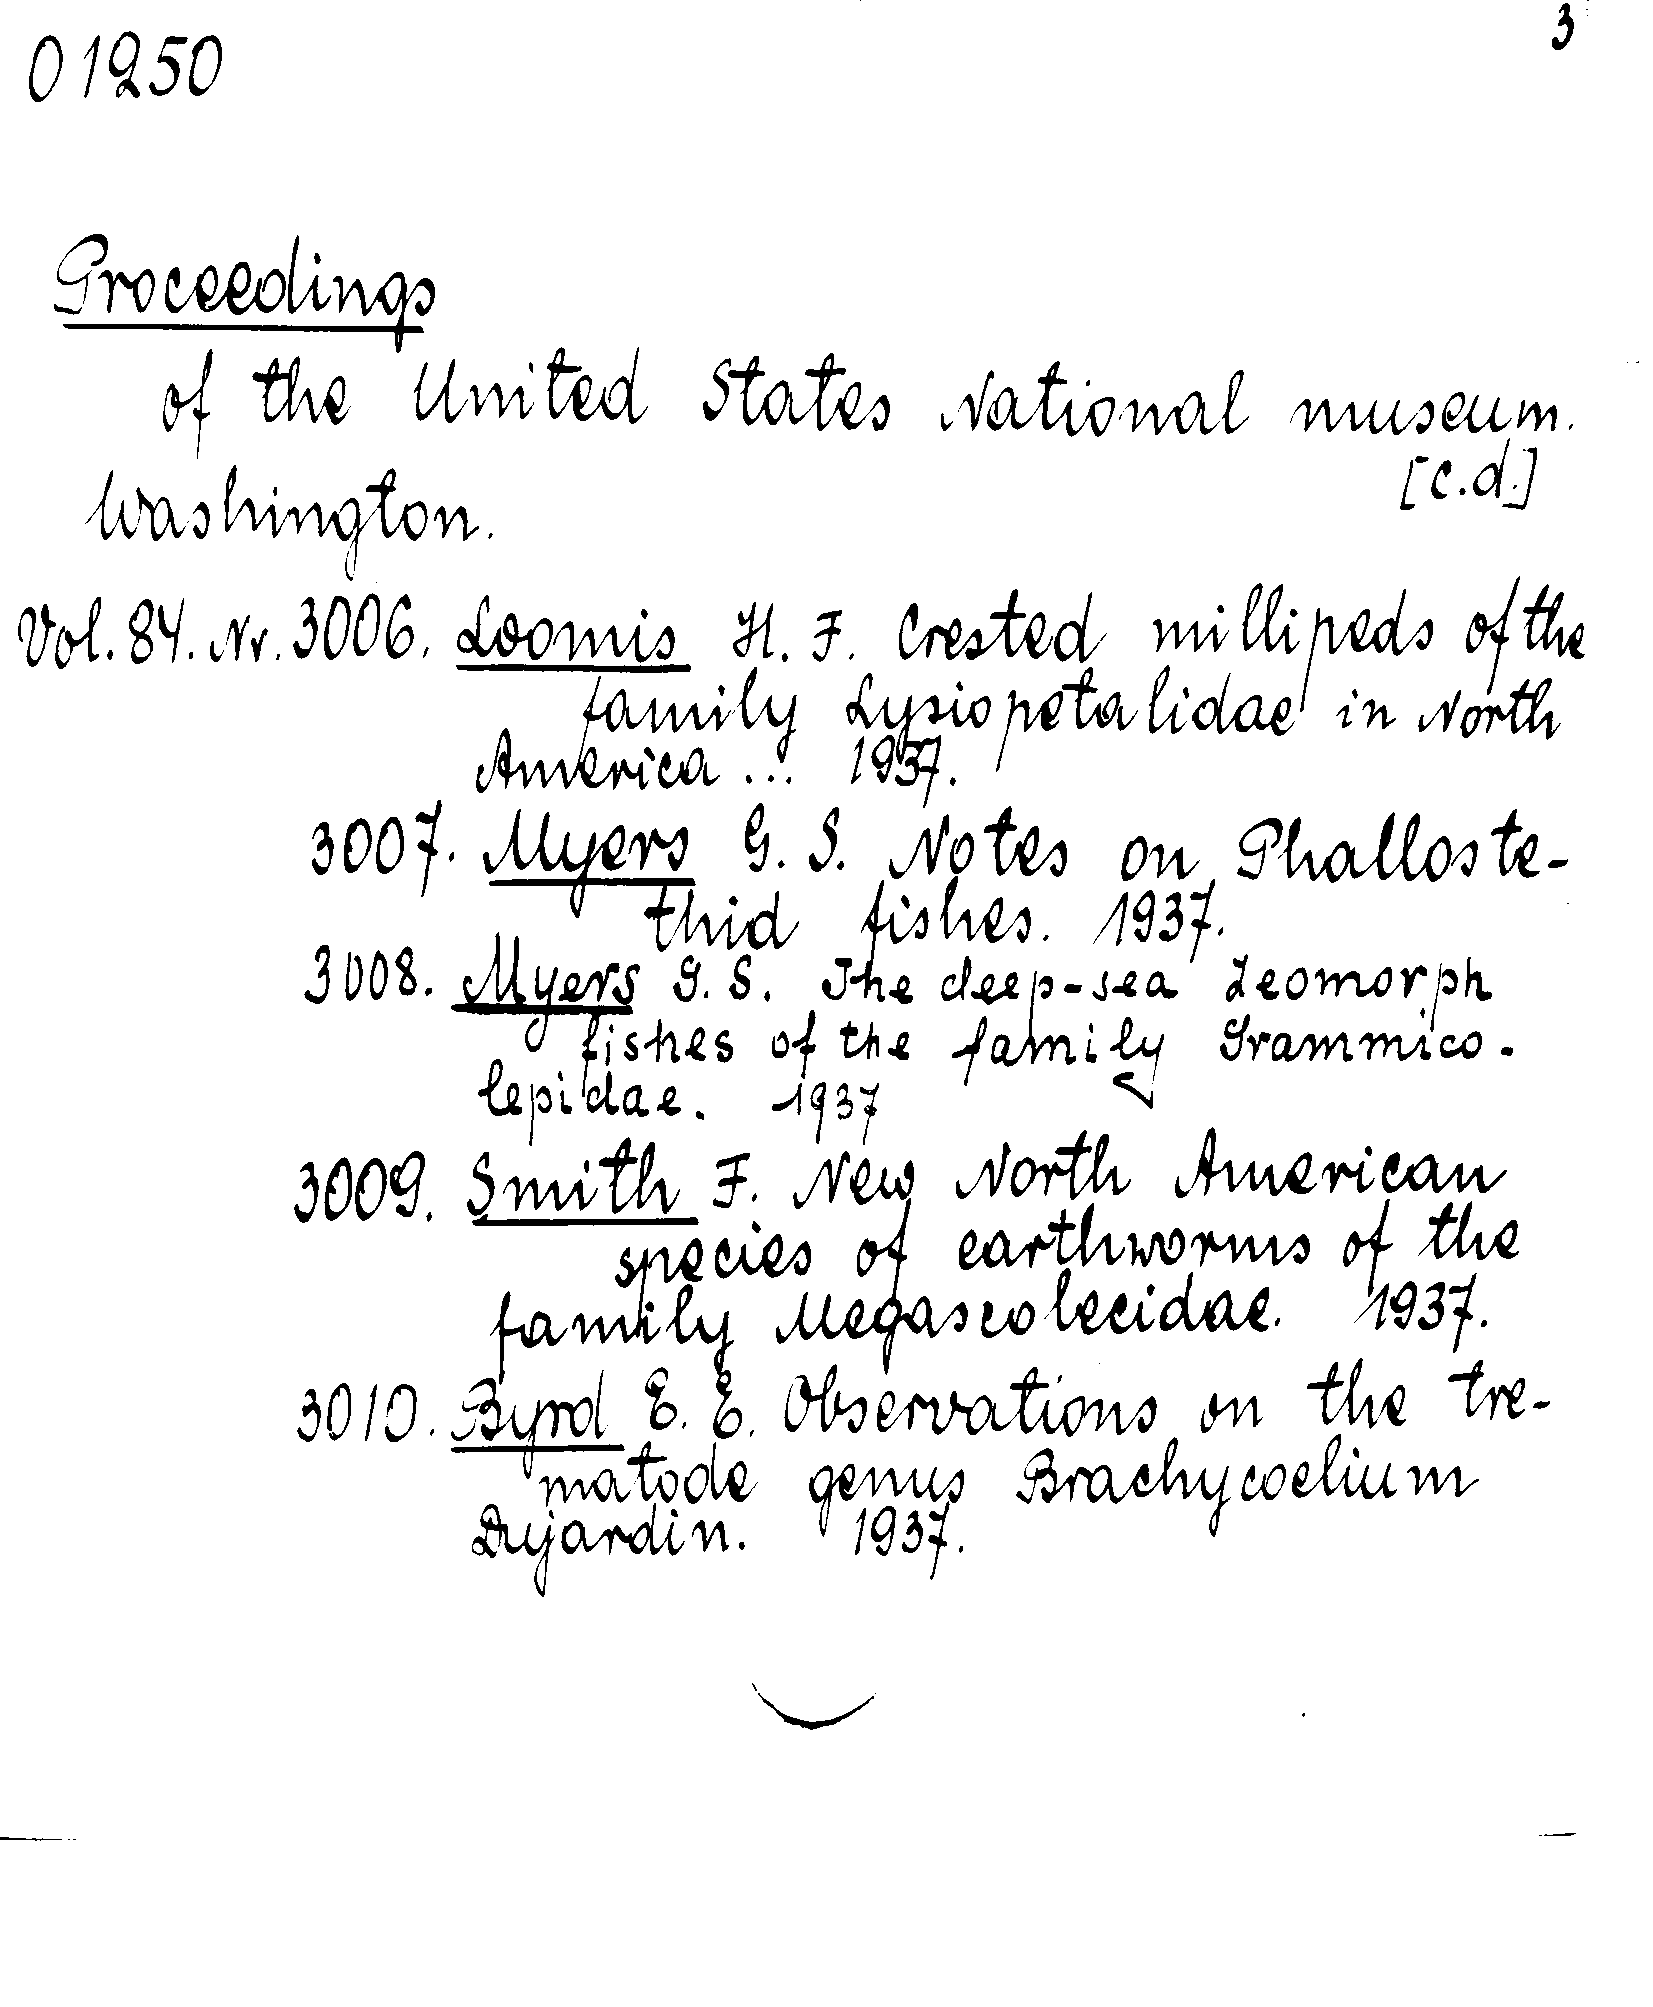 3
01250
Proceedings
of the United States National museum.
[c.d.]
Washington.
Vol. 84. Nr. 3006. Loomis H. F. Crested millipeds of the
family Lysiopetalidae in North
America ... 1937.
3007. Myers G. S. Notes on Phalloste-
thid fishes. 1937.
3008. Myers G. S. The deep-sea Zeomorph
fishes of the family Grammico-
lepidae. 1937
3009. Smith F. New North American
species of earthworms of the
family Megascolecidae. 1937.
3010. Byrd E. E. Observations on the tre-
matode genus Brachycoelium
Dujardin. 1937.